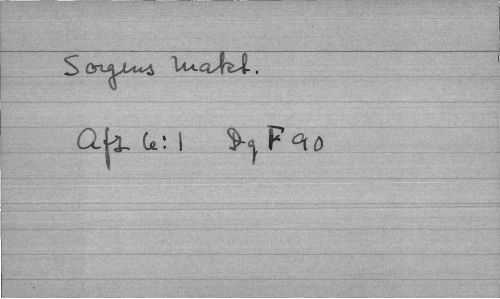 Sorgens makt.
Afz 6:1 Dg F 90